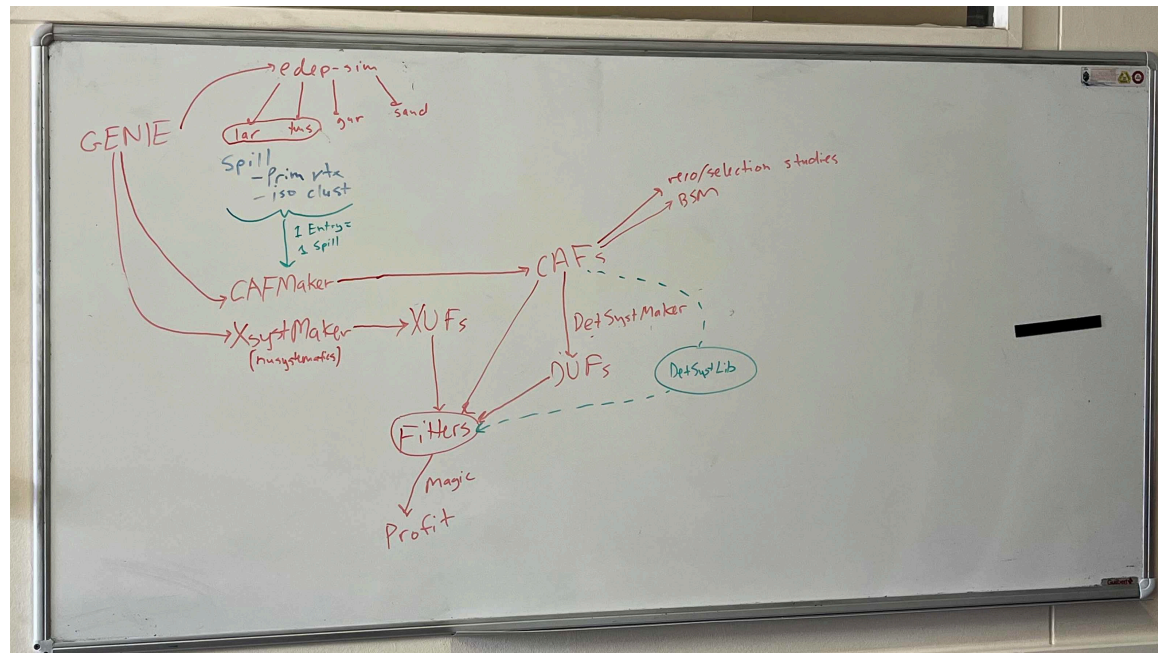 edep-sim
GENIE
lar tms gar sand
Spill
- Prim vtx
- iso clust
1 Entry =
1 Spill
reco/selection studies
BSM
CAFs
CAFMaker
XsystMaker
(nusystematics)
XUFs
DetSystMaker
DUFs
DetSystLib
Fitters
Magic
Profit